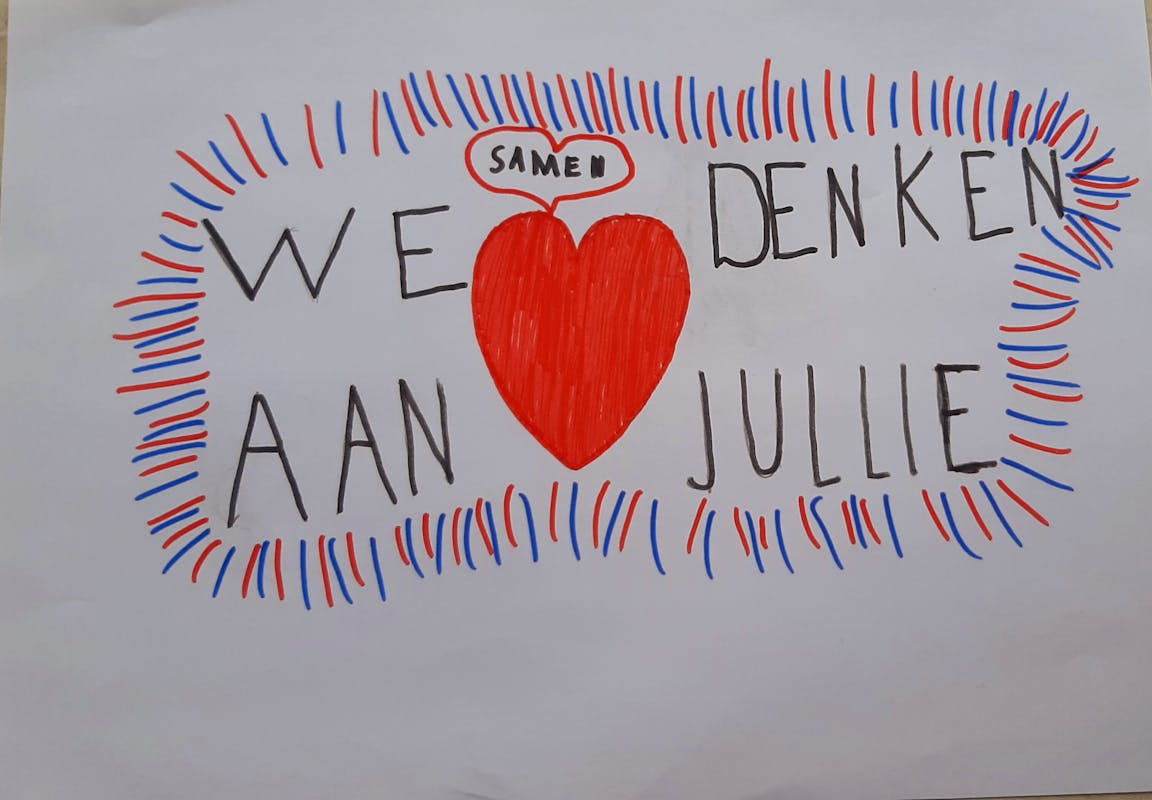 SAMEN
WE DENKEN
AAN JULLIE